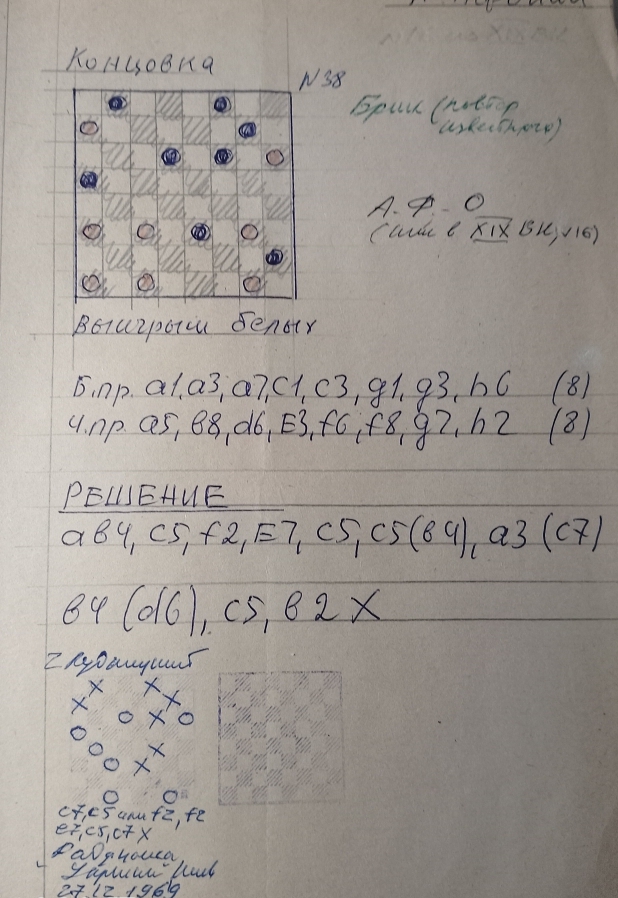 Концовка
N38
Брик (повтор
известного)
А. Ф. О
XIX
Выигрыш белых
б.пр. a1, a3, a7, c1, c3, g1, g3, h6 (8)
ч.пр. a5, в8, d6, E3, f6, f8, g7, h2 (8)
РЕШЕНИЕ
aв4, c5, f2, E7, c5, c5(в4), a3 (c7)
в4 (d6), c5, в2 X
c7, c5 или f2, f2
e7, c5, c7 X
27.12.1969